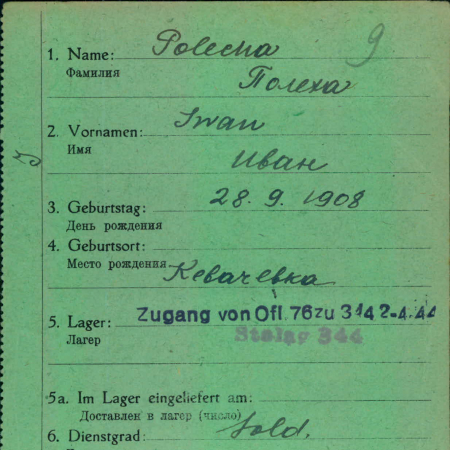 9
1. Name: Polecha
Фамилия
Полеха
2. Vornamen: Iwan
Имя
Иван
3. Geburtstag: 28. 9. 1908
День рождения
4. Geburtsort:
Место рождения Кевачевка
5. Lager: Zugang von Ofl. 76 zu 314 2-4.44
Лагерь Stalag 344
5a. Im Lager eingeliefert am:
Доставлен в лагер (число)
6. Dienstgrad: Sold.